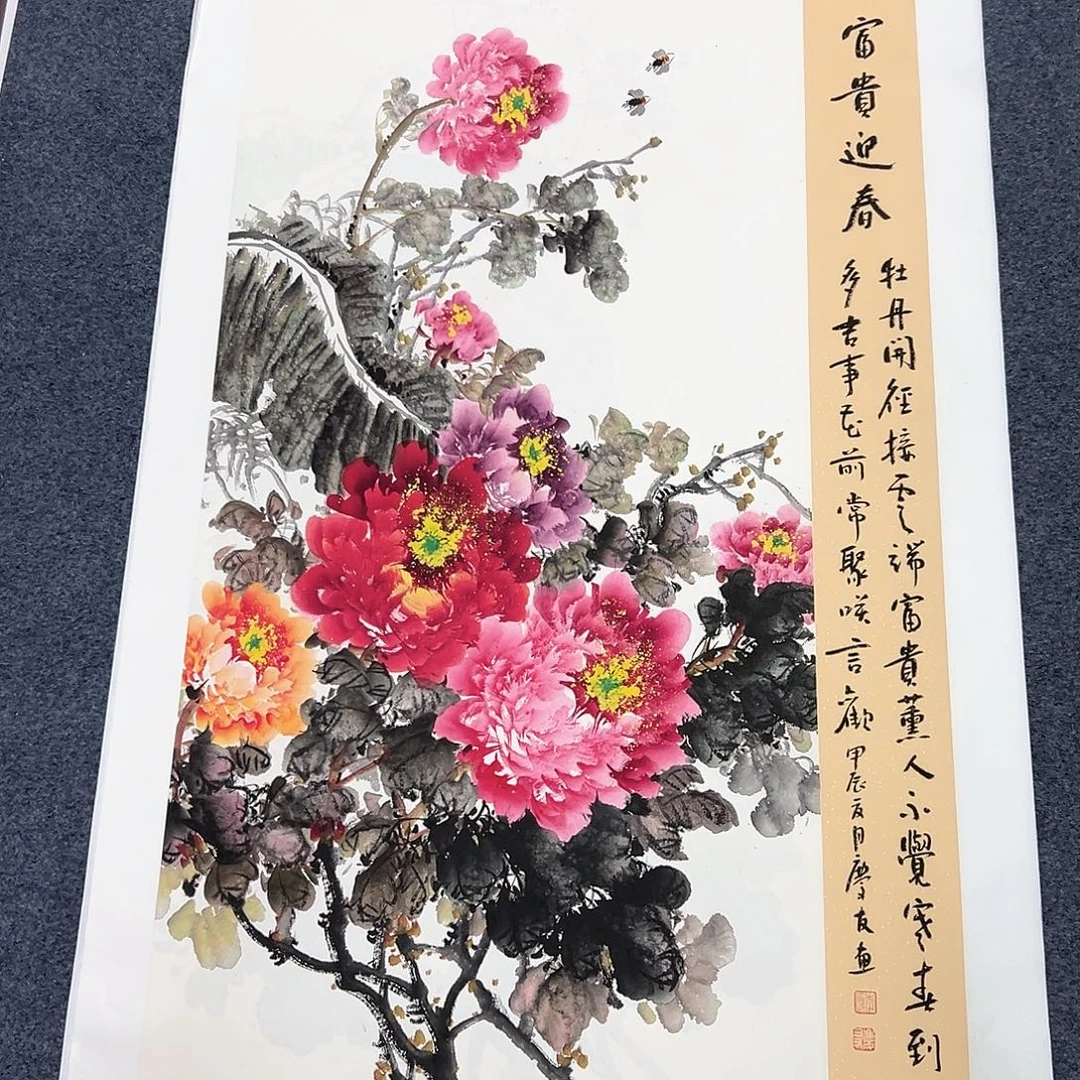 富貴迎春
牡丹開径接雲端富貴薰人不覺寒春到
多吉事花前常聚咲言歡甲辰夏月慶友画